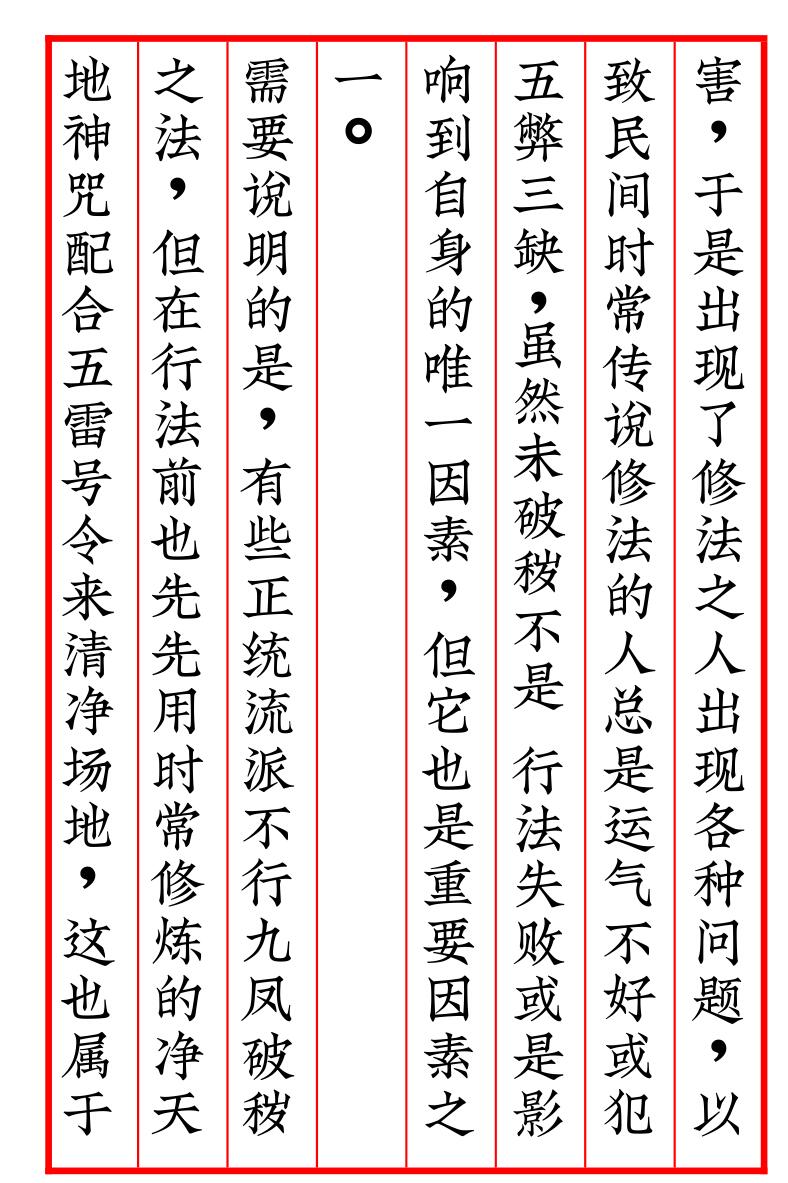 害，于是出现了修法之人出现各种问题，以
致民间时常传说修法的人总是运气不好或犯
五弊三缺，虽然未破秽不是 行法失败或是影
响到自身的唯一因素，但它也是重要因素之
一。
需要说明的是，有些正统流派不行九凤破秽
之法，但在行法前也先先用时常修炼的净天
地神咒配合五雷号令来清净场地，这也属于